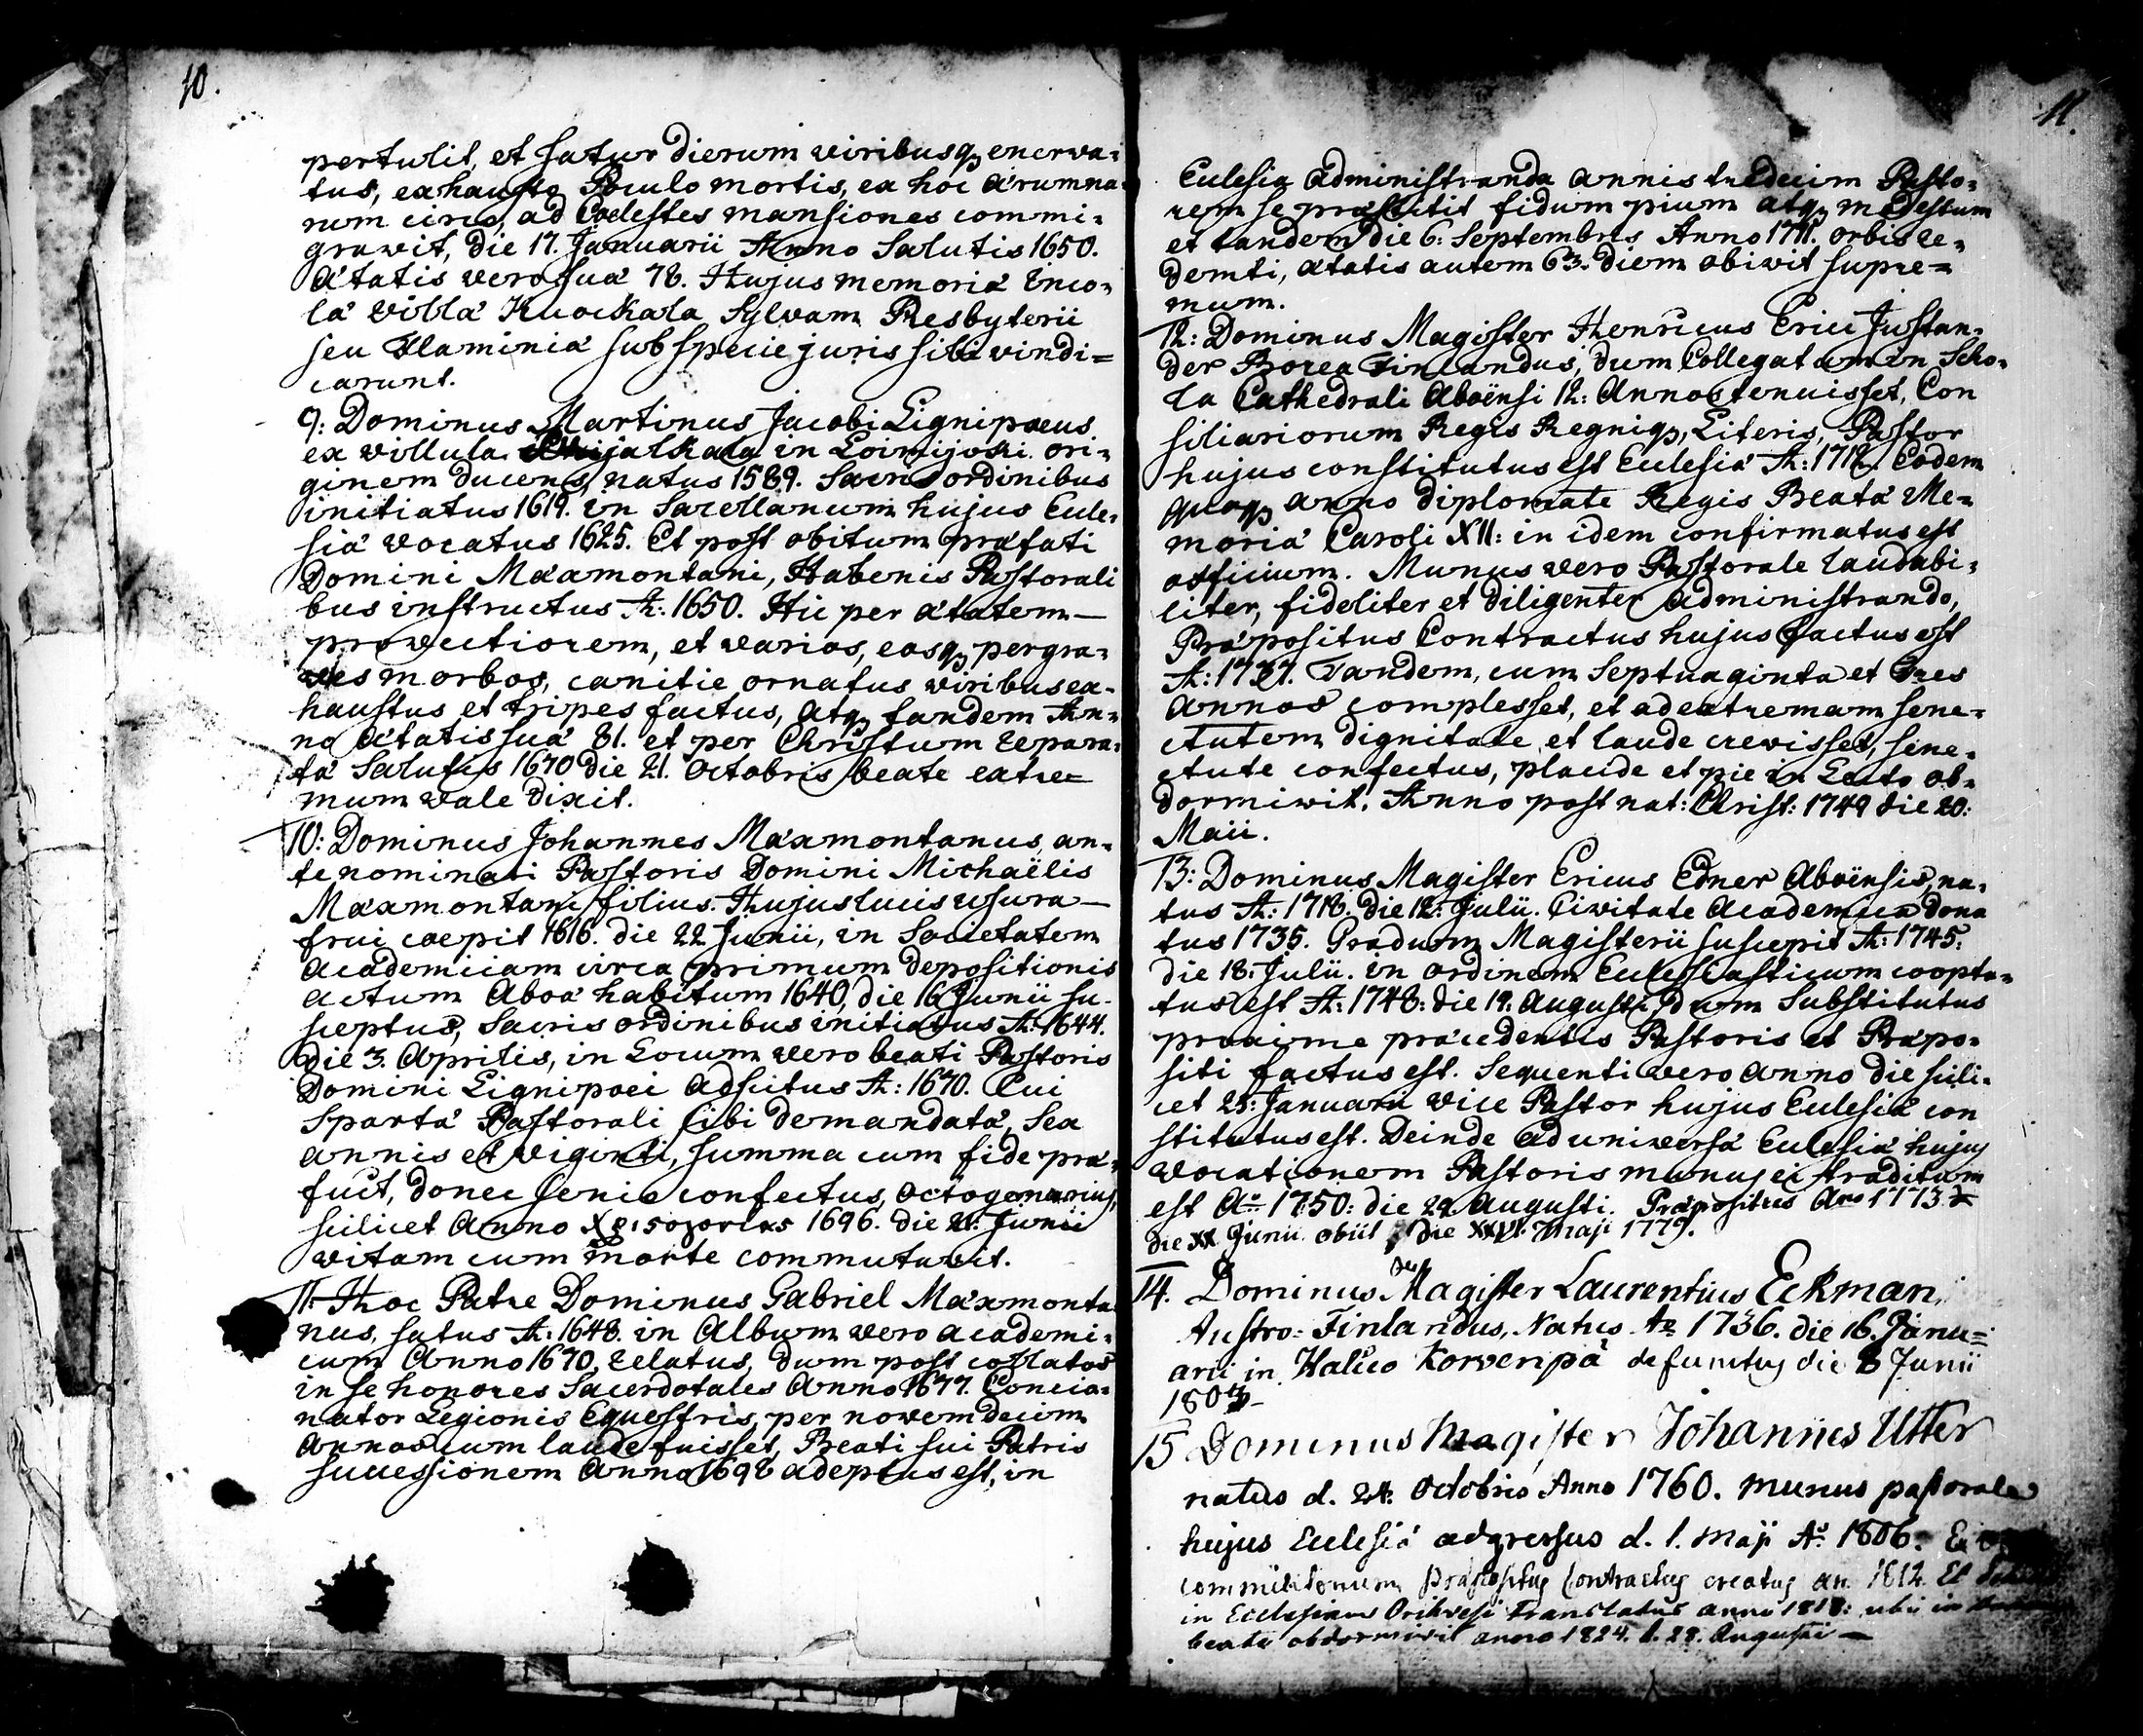 10.
pertulit, et satur dierum viribusq; enerva-
tus, exhausto Poculo mortis, ex hoc ærumna-
rum circo, ad Coelestes mansiones commi-
gravit, die 17. Januarii Anno Salutis 1650.
Ætatis vero suæ 78. Hujus memoriâ Inco-
læ villæ Kuockala Sylvam Presbyterii
seu Flaminiæ sub specie juris sibi vindi=
carunt.
9: Dominus Martinus Jacobi Lignipæus
ex villula in Loimijoki ori-
ginem ducens, natus 1589. Sacris ordinibus
initiatus 1619. in Sacellanum hujus Eccle-
siæ vocatus 1625. Et post obitum præfati
Domini Maxmontani, Habenis Pastorali
bus instructus A: 1650. Hic per ætatem
provectiorem, et varios, eosq; pergra-
ves morbos, canitie ornatus viribus ex-
haustus et tripes factus, atq; tandem An-
no Ætatis suæ 81. et per Christum repara-
tæ Salutis 1670 die 21. Octobris beate extre-
mum vale dixit.
10: Dominus Johannes Maxmontanus, an-
te nominati Pastoris Domini Michaëlis
Maxmontani filius. Hujus lucis usura
frui coepit 1616. die 22 Junii, in Societatem
Academicam circa primum depositionis
actum Aboæ habitum 1640, die 16 Junii su-
sceptus, Sacris ordinibus initiatus A: 1644.
die 3. Aprilis, in Locum vero beati Pastoris
Domini Lignipæi adscitus A: 1670. Cui
Spartæ Pastorali sibi demandatæ, Sex
annis et viginti, summa cum fide præ-
fuit, donec senio confectus, octogenarius
scilicet Anno 1696. die 21. Junii
vitam cum morte commutavit.
11. Hoc Patre Dominus Gabriel Maxmonta
nus, satus A: 1648. in Album vero academi-
cum Anno 1670, relatus, dum post collatos
in se honores Sacerdotales Anno 1677. Concio-
nator Legionis Equestris, per novemdecim
annos cum laude fuisset, Beati sui Patris
successionem Anno 1698 adeptus est, in
11.
Ecclesia administranda annis tredecim Pasto-
rem se præstitit fidum pium atq; modestum
et tandem die 6: Septembris Anno 1711. orbis re-
demti, ætatis autem 63. diem obivit supre=
mum.
12: Dominus Magister Henricus Erici Justan-
der Borea Finlandus, dum Collegatum in Scho-
la Cathedrali Aboënsi 12: Annos tenuisset, Con
siliariorum Regis Regniq; Literis, Pastor
hujus constitutus est Ecclesiæ A: 1712. Eodem
quoq; anno diplomate Regis Beatæ Me-
moriæ Caroli XII: in idem confirmatus est
officium. Munus vero Pastorale laudabi-
liter, fideliter et diligenter administrando,
Præpositus Contractus hujus factus est
A: 1737. Tandem, cum Septuaginta et Tres
annos complesset, et ad extremam sene-
ctutem dignitate et laude crevisset, sene-
ctute confectus, placide et pie in Lecto ob-
dormivit. Anno post nat: Christ: 1749 die 20:
Maii.
13: Dominus Magister Ericus Edner Aboënsis, na-
tus A: 1718. die 12: Julii. Civitate Academica dona
tus 1735. Gradum Magisterii suscepit A: 1745.
die 18: Julii. in ordinem Ecclesiasticum coopta-
tus est A: 1748: die 19. Augusti, dum Substitutus
proxime præcedentis Pastoris et Præpo-
siti factus est. Sequenti vero anno die scili-
cet 25: Januarii vice Pastor hujus Ecclesiæ con
stitutus est. Deinde ad universæ Ecclesiæ hujus
vocationem Pastoris munus ei traditum
est Ao 1750: die 22 Augusti. Præpositus Ano 1773
die XX Junii obiit die XXVI. Maji 1779.
14. Dominus Magister Laurentius Eckman,
Austro-Finlandus, Natus Ao 1736. die 16. Janu=
arii in Halico Korvenpä defunctus die 8 Junii
180
15 Dominus Magister Johannes Utter
natus d. 24. Octobris Anno 1760. munus pastorale
hujus Ecclesiæ adgressus d. 1. Maji Ao 1806.
commilitonum Præpositus Contractus creatus an. 1812. Et
in Ecclesiam Orihvesi translatus anno 1818: ubi in
beate obdormivit anno 1824. d. 28. Augusti